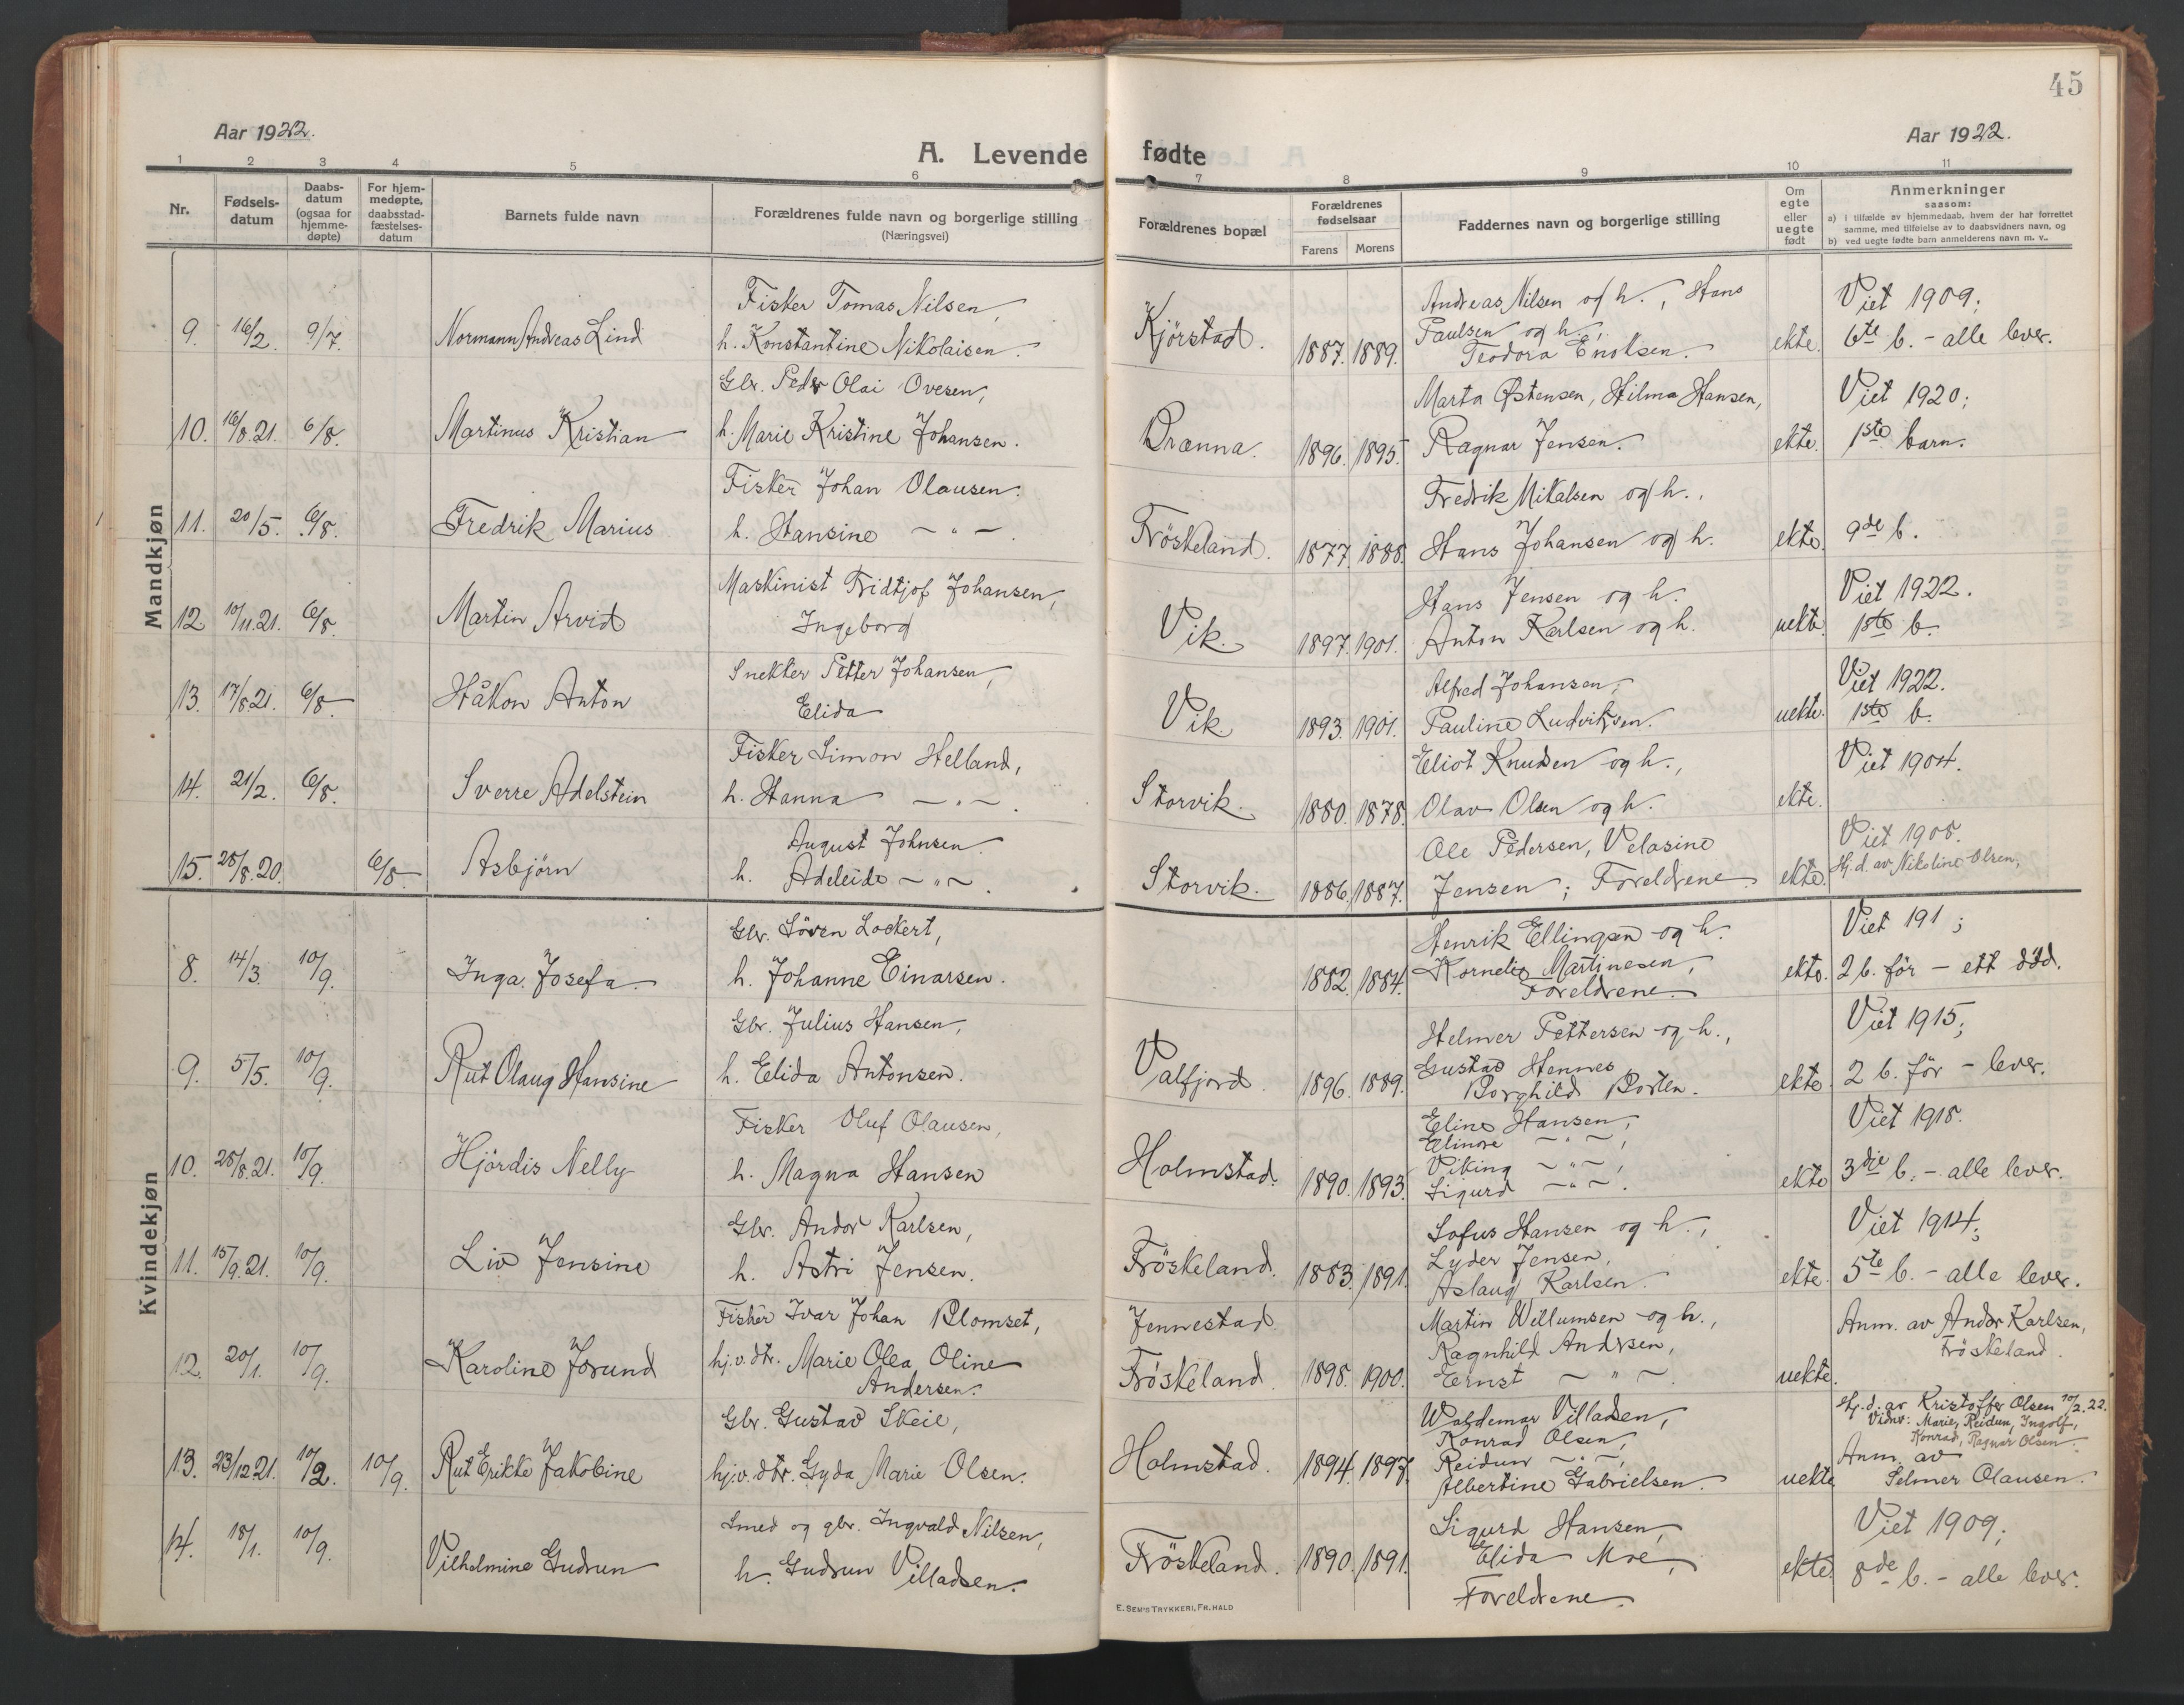 45
Aar 1922.
Aar 1922.
A. Levende fødte
1 2 3 4 5 6 7 8 9 10 11
Nr.
Fødsels-
datum
Daabs-
datum
(ogsaa for
hjemme-
døpte)
For hjem-
medøpte,
daabsstad-
fæstelses-
datum
Barnets fulde navn
Forældrenes fulde navn og borgerlige stilling
(Næringsvei)
Forældrenes bopæl
Forældrenes
fødselsaar
Farens
Morens
Faddernes navn og borgerlige stilling
Om
egte
eller
uegte
født
Anmerkninger
saasom:
a) i tilfælde av hjemmedaab, hvem der har forrettet
samme, med tilføielse av to daabsvidners navn, og
b) ved uegte fødte barn anmelderens navn m. v..
Mandkjøn
9. 16/2. 9/7. Normann Andreas Lind
Fisker Tomas Nilsen,
h. Konstantine Nikolaisen.
Kjörstad. 1887. 1889.
Andreas Nilsen og h., Hans
Paulsen og h.,
Teodora Enoksen.
ekte.
Viet 1909;
6te b. - alle lever.
10. 16/8.21. 6/8. Martinus Kristian
Gbr. Peder Olai Ovesen,
h. Marie Kristine Johansen.
Brænna. 1896. 1895.
Marta Östensen, Hilma Hansen,
Ragnar Jensen.
ekte.
Viet 1920;
1ste barn.
11. 20/5. 6/8. Fredrik Marius
Fisker Johan Olausen.
h. Hansine - " -.
Fröskeland. 1877. 1888.
Fredrik Mikalsen og h.,
Hans Johansen og h.
ekte.
9de b.
12. 10/11.21. 6/8. Martin Arvid
Maskinist Fridtjof Johansen,
Ingeborg
Vik. 1897. 1901.
Hans Jensen og h.
Anton Karlsen og h.
uekte.
Viet 1922.
1ste b.
13. 17/8.21. 6/8. Håkon Anton
Snekker Petter Johansen,
Elida
Vik. 1893. 1901.
Alfred Johansen,
Pauline Ludviksen.
uekte.
Viet 1922.
1ste b.
14. 21/2. 6/8. Sverre Adelstein
Fisker Simon Helland,
h. Hanna - " -.
Storvik. 1880. 1878.
Eliot Knudsen og h.,
Olav Olsen og h.
ekte.
Viet 1904.
15. 28/8.20. 6/8. Asbjörn
August Johnsen.
h. Adeleide - " -.
Storvik. 1886. 1887.
Ole Pedersen, Velasine
Jensen; Foreldrene.
ekte.
Viet 1908.
Hj.d. av Nikoline Olsen,
Kvindekjøn
8. 14/3. 10/9. Inga Josefa.
Gbr. Sören Lockert,
h. Johanne Einarsen.
1882. 1884.
Henrik Ellingsen og h.
Kornelie Martinesen,
Foreldrene.
ekte.
Viet 191 ;
2 b. för - ett död.
9. 5/5. 10/9. Rut Olaug Hansine
Gbr. Julius Hansen,
h. Elida Antonsen.
Valfjord. 1896. 1889.
Helmer Pettersen og h.,
Gustav Hennes
Borghild Borten.
ekte.
Viet 1915;
2 b. för - lever.
10. 28/8.21. 10/9. Hjördis Nelly
Fisker Oluf Olausen,
h. Magna Hansen
Holmstad. 1890. 1893.
Eline Hansen,
Elinore - " -,
Viking - " -,
Sigurd - " -.
ekte
Viet 1918.
3die b. - alle lever.
11. 15/9.21. 10/9. Liv Jensine
Gbr. Andor Karlsen,
h. Astri Jensen.
Fröskeland. 1883. 1891.
Sofus Hansen og h.,
Lyder Jensen,
Aslaug Karlsen.
ekte.
Viet 1914;
5te b. - alle lever.
12. 20/1. 10/9. Karoline Jorund
Fisker Ivar Johan Blomset,
hj.v.dtr. Marie Olea Oline
Andersen.
Jennestad.
Fröskeland. 1898. 1900.
Martin Willumsen og h.,
Ragnhild Andersen,
Ernst - " -.
uekte.
Anm. av Andor Karlsen,
Fröskeland.
13. 23/12.21. 10/2. 10/9. Rut Erikke Jakobine
Gbr. Gustav Skeie,
hj.v.dtr. Gyda Marie Olsen.
Holmstad. 1894. 1897.
Waldemar Villadsen,
Konrad Olsen,
Reidun - " -,
Albertine Gabrielsen.
uekte
Hj.d. av Kristoffer Olsen 10/2.22.
Vidner: Marie, Reidun, Ingolf,
Konrad, Ragnar Olsen.
Anm. av
Selmer Olausen.
14. 18/1. 10/9. Vilhelmine Gudrun
Smed og gbr. Ingvald Nilsen,
h. Gudrun Villadsen.
Fröskeland. 1890. 1891.
Sigurd Hansen,
Elida Moe,
Foreldrene.
ekte.
Viet 1909;
8de b. - alle lever.
E. SEM'S TRYKKERI, FR. HALD